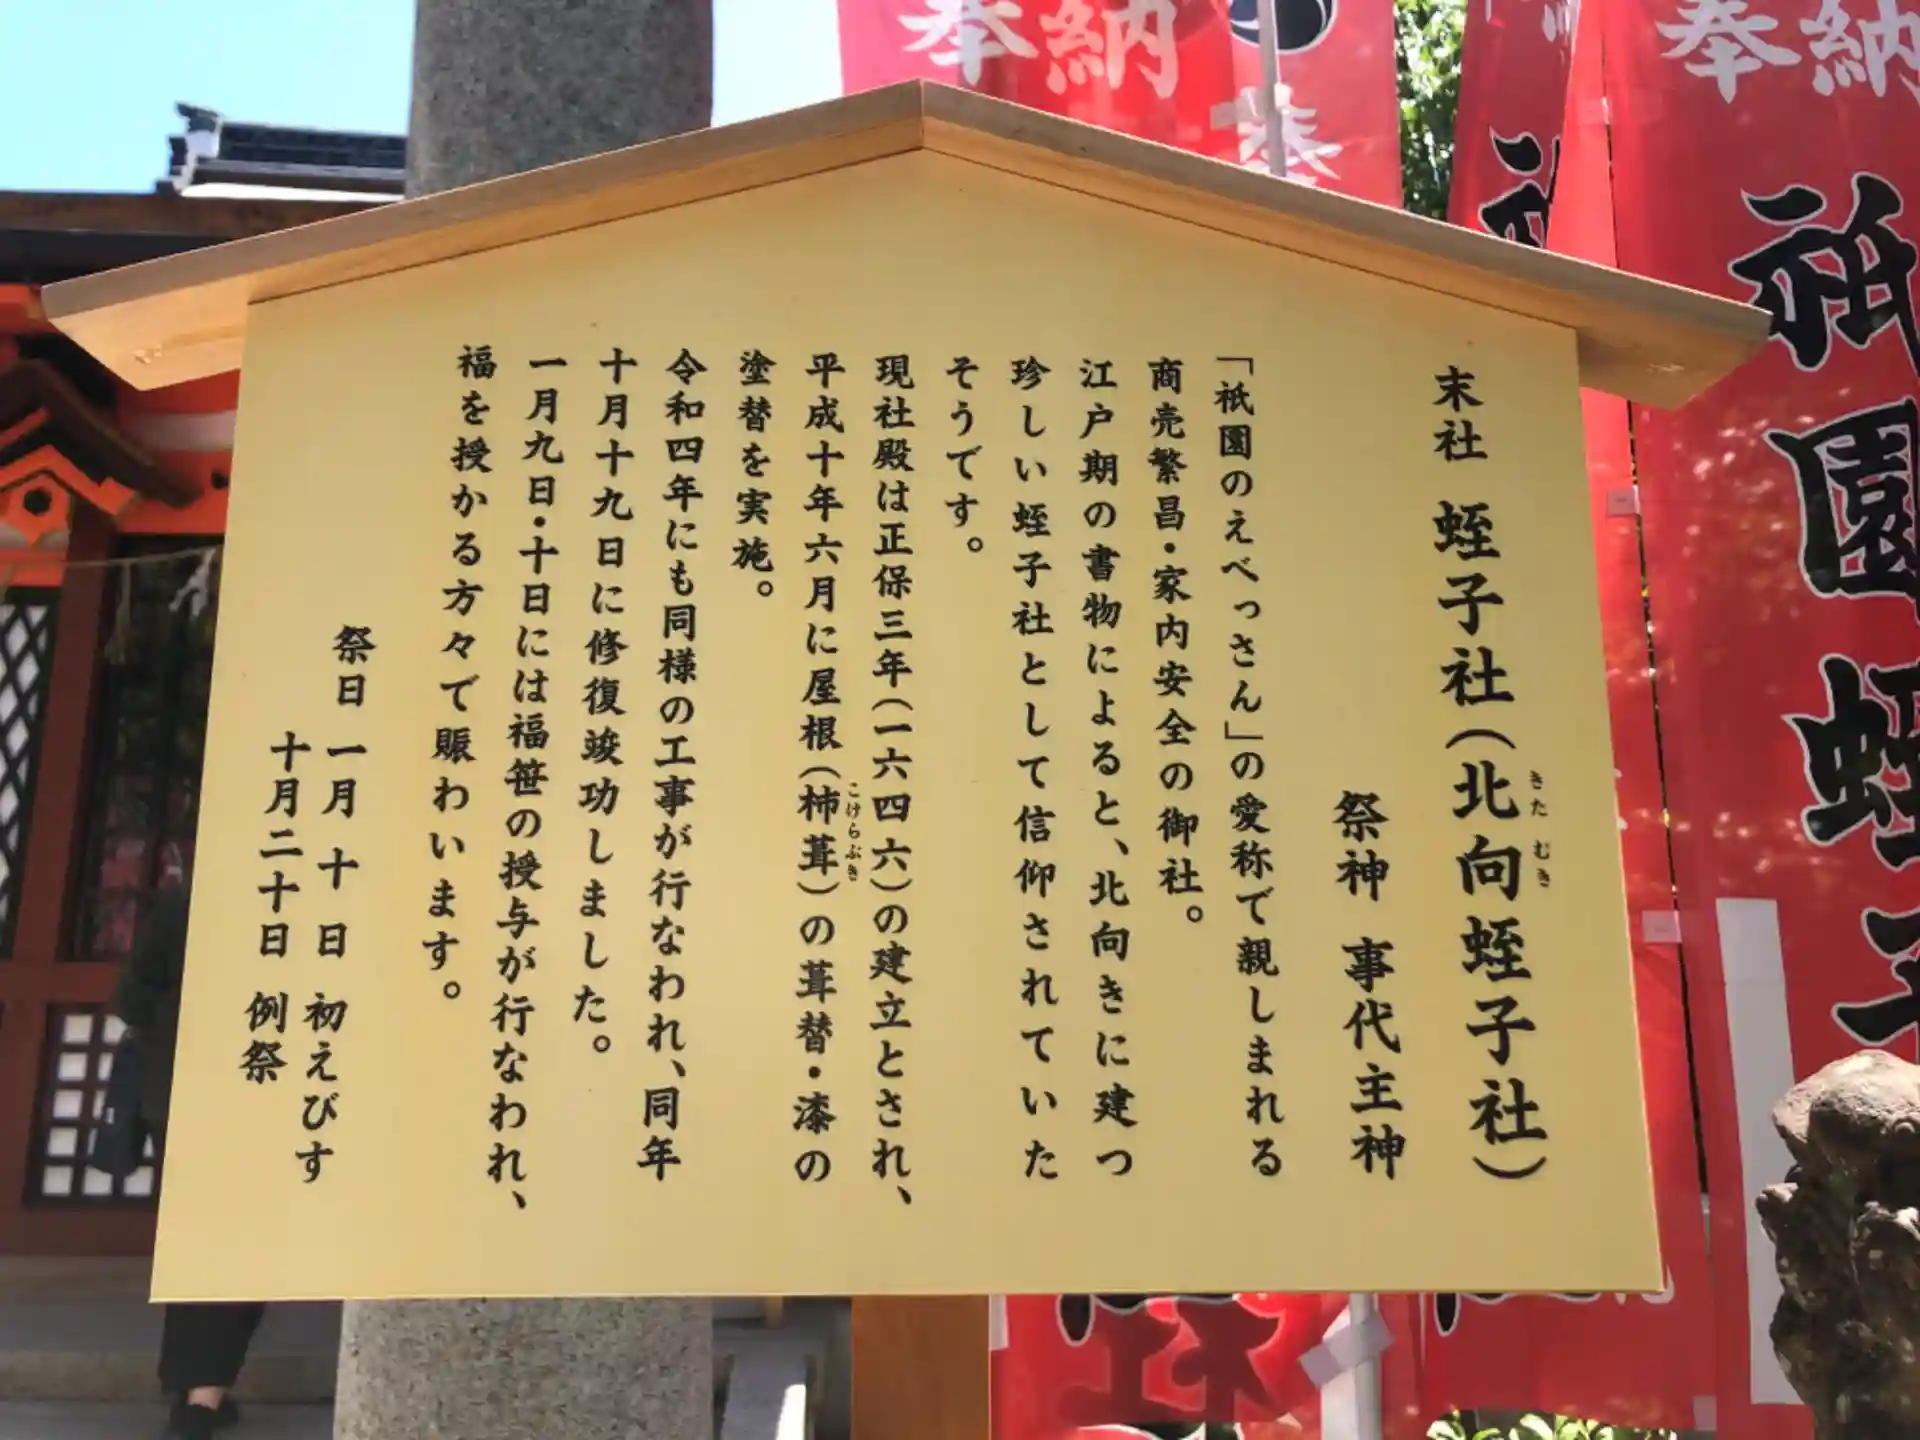 末社 蛭子社(北向蛭子社)
きた むき
祭神 事代主神
「祇園のえべっさん」の愛称で親しまれる
商売繁昌・家内安全の御社。
江戸期の書物によると、北向きに建つ
珍しい蛭子社として信仰されていた
そうです。
現社殿は正保三年(一六四六)の建立とされ、
平成十年六月に屋根(杮葺)の葺替・漆の
こけらぶき
塗替を実施。
令和四年にも同様の工事が行なわれ、同年
十月十九日に修復竣功しました。
一月九日・十日には福笹の授与が行なわれ、
福を授かる方々で賑わいます。
祭日 一月 十 日 初えびす
十月二十日 例祭
奉納
祇園蛭子
奉納
奉